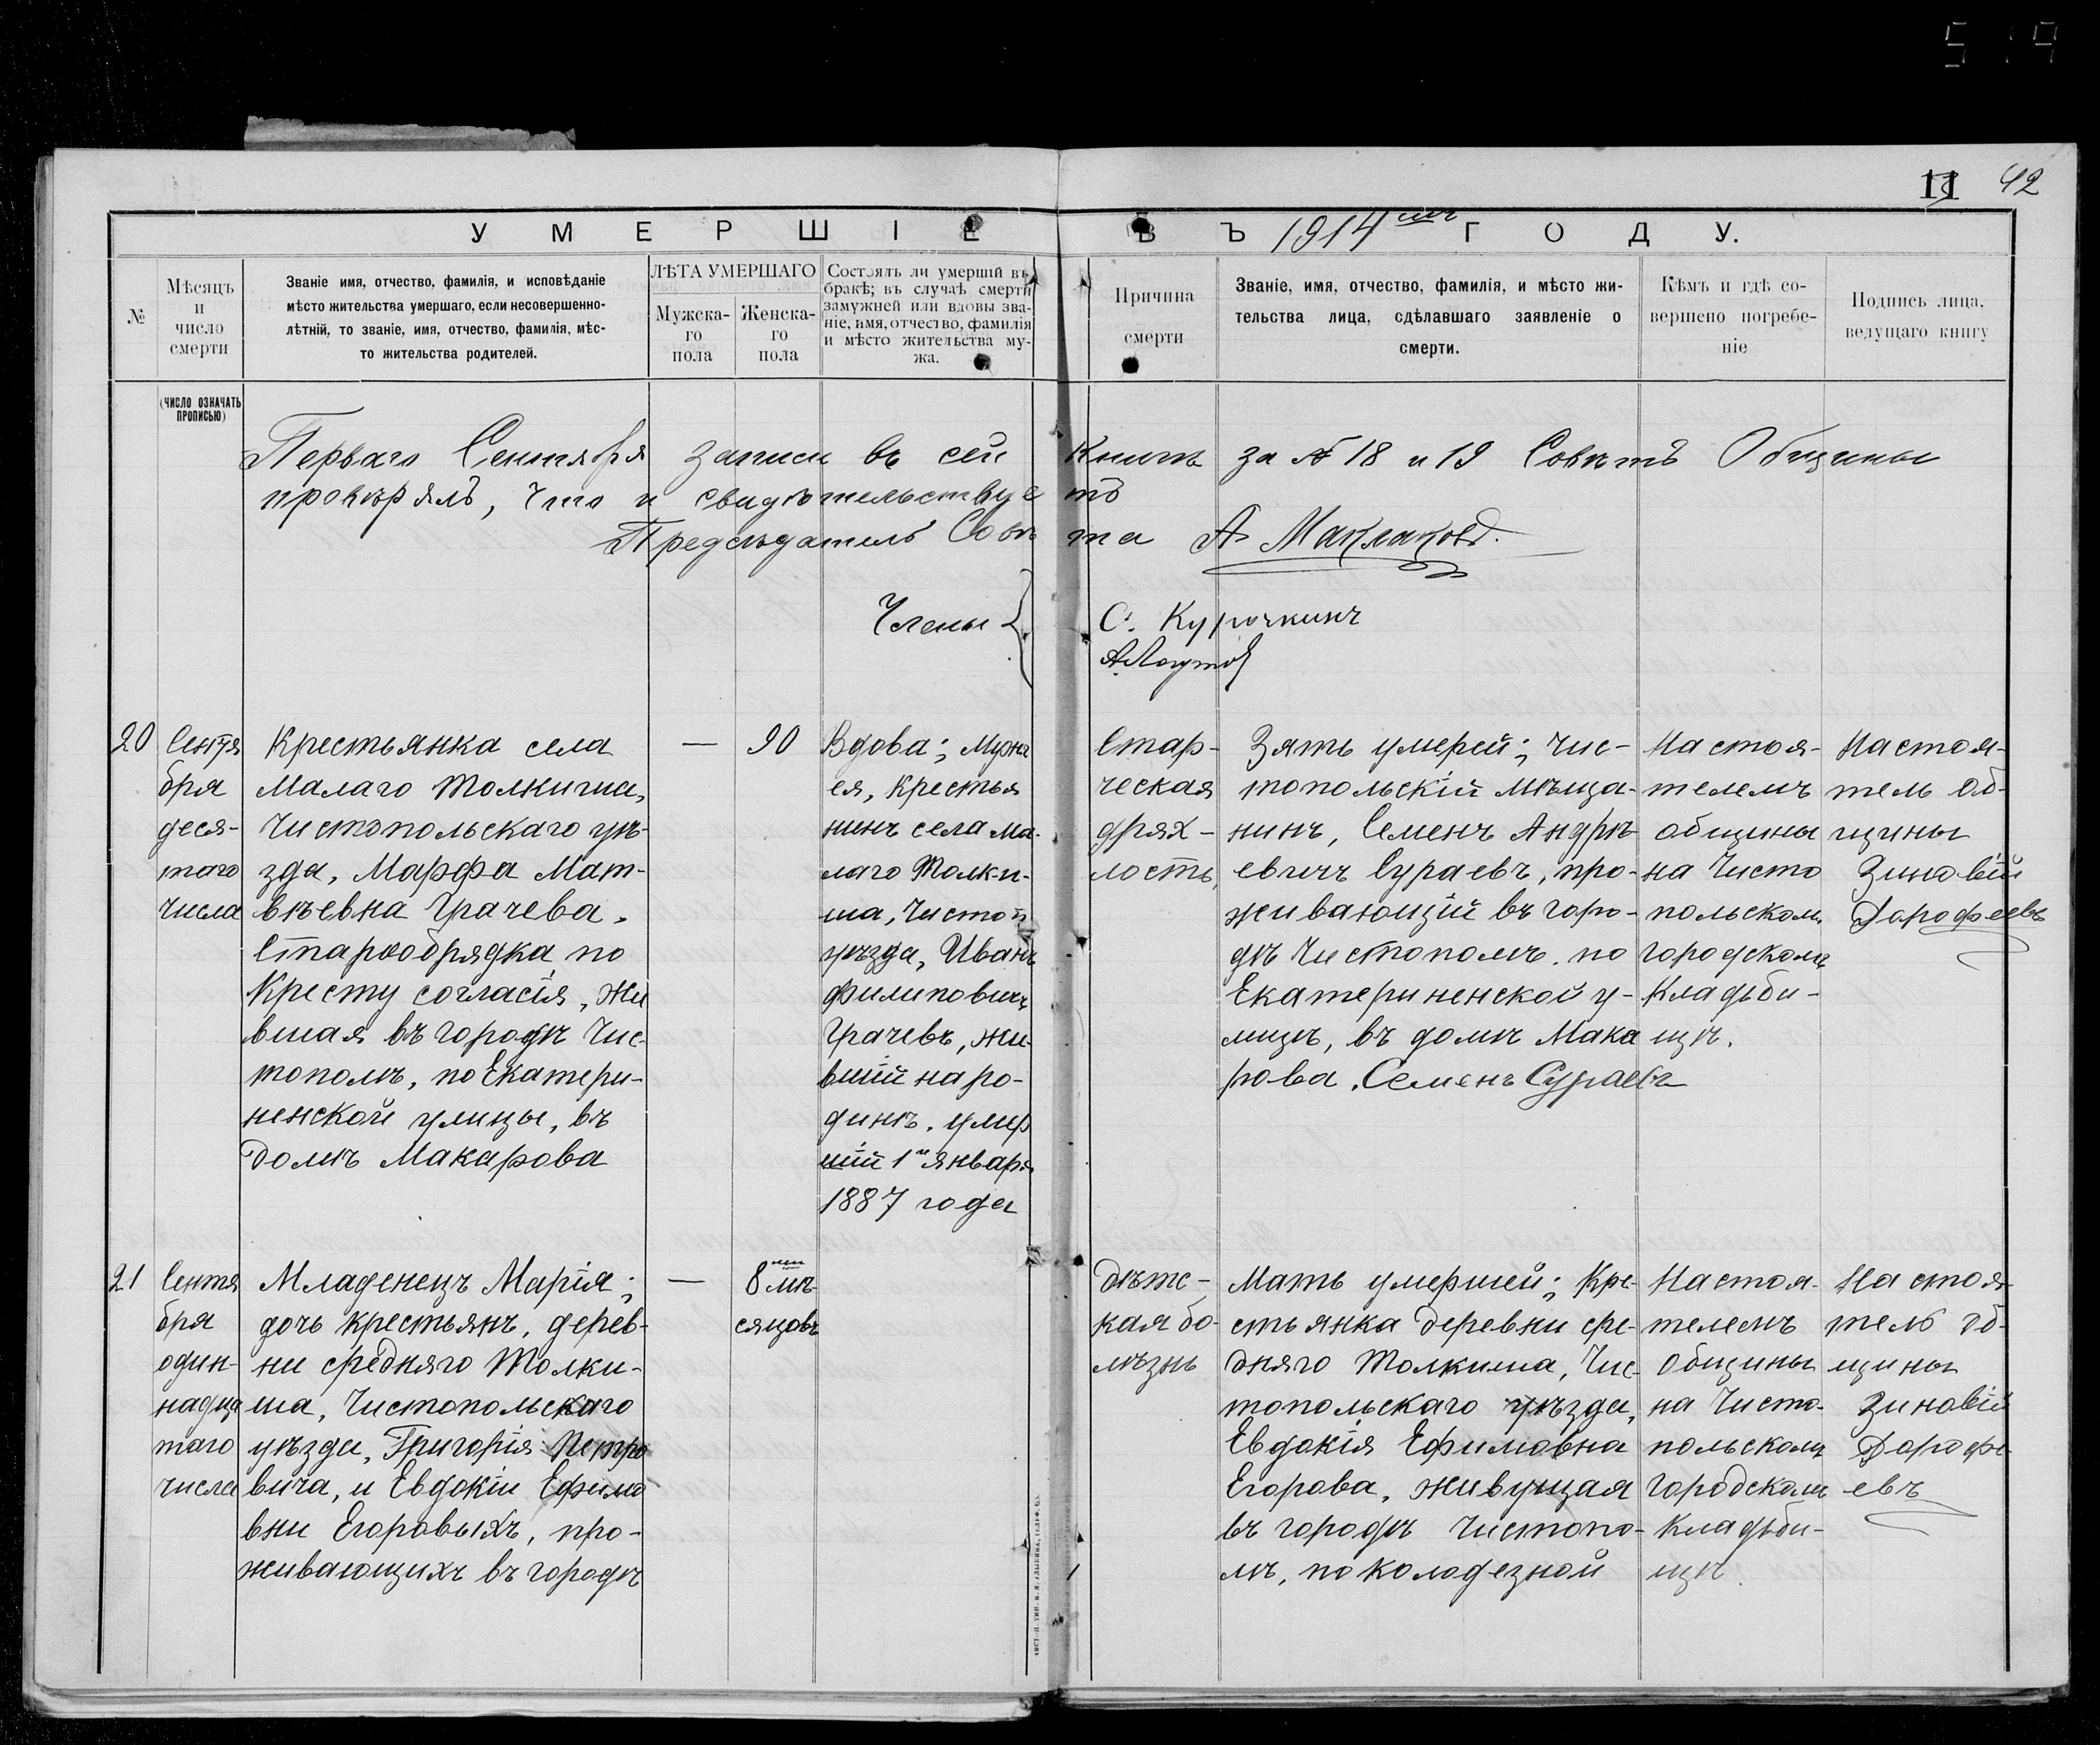 519
11 42
УМЕРШІЕ ВЪ 1914мъ ГОДУ.
№
Мѣсяцъ
и
число
смерти
Званіе имя, отчество, фамилія, и исповѣданіе
мѣсто жительства умершаго, если несовершенно-
лѣтній, то званіе, имя, отчество, фамилія, мѣс-
то жительства родителей.
ЛѢТА УМЕРШАГО
Мужска-
го
пола
Женска-
го
пола
Состоялъ ли умершій въ
бракѣ; въ случаѣ смерти
замужней или вдовы зва-
ніе, имя, отчество, фамилія
и мѣсто жительства му-
жа.
Причина
смерти
Званіе, имя, отчество, фамилія, и мѣсто жи-
тельства лица, сдѣлавшаго заявленіе о
смерти.
Кѣмъ и гдѣ со-
вершено погребе-
ніе
Подпись лица,
ведущаго книгу
(ЧИСЛО ОЗНАЧАТЬ
ПРОПИСЬЮ)
Перваго Сентября записи въ сей книгѣ за № 18 и 19 Совѣтъ Общины
провѣрялъ, что и свидѣтельствуетъ
Предсѣдатель Совѣта А Маклаковъ.
Члены {
С. Курочкинъ
20
Сентя
бря
деся-
таго
числа
Крестьянка села
Малаго Толкиша,
Чистопольскаго уѣ-
зда, Марфа Мат-
вѣевна Грачева.
Старообрядка по
Кресту согласія, жи
вшая въ городѣ Чис-
тополѣ, по Екатери-
ненской улицы, въ
домѣ Макарова
—
90
Вдова; Мужъ
ея, Крестья
нинъ села Ма-
лаго Толки-
ша, Чистоп
уѣзда, Иванъ
Филиповичъ
Грачевъ, жи-
вшій на ро-
динѣ. умер
шій 1го Января
1887 года
Стар-
ческая
дрях-
лость,
Зять умерей; Чис-
топольскій мѣща-
нинъ, Семенъ Андрѣ
евичъ Сураевъ, про-
живающій въ горо-
дѣ Чистополѣ. по
Екатериненской у-
лицѣ, въ домѣ Мака
рова. Семенъ Сураевъ
Настоя-
телемъ
общины
на Чисто
польскомъ
городскомъ
Кладби-
щѣ.
Настоя-
тель Об-
щины
Зиновій
Дорофеевъ
21
Сентя
бря
один-
надца
таго
числа
Младенецъ Марія;
дочь крестьянъ, дерев-
ни средняго Толки-
ша, Чистопольскаго
уѣзда, Григорія Петро
вича, и Евдокіи Ефимо
вни Егоровыхъ, про-
живающихъ въ городѣ
—
8ми мѣ-
сяцовъ
Дѣтс-
кая бо-
лѣзнь
Мать умершей; Кре-
стьянка деревни сре-
дняго Толкиша, Чис-
топольскаго уѣзда,
Евдокія Ефимовна
Егорова, живущая
въ городѣ Чистопо-
лѣ, по колодезной
Настоя-
телемъ
Общины
на Чисто-
польскомъ
городскомъ
Кладби-
щѣ.
Настоя-
тель Об-
щины
Зиновій
Дорофе-
евъ